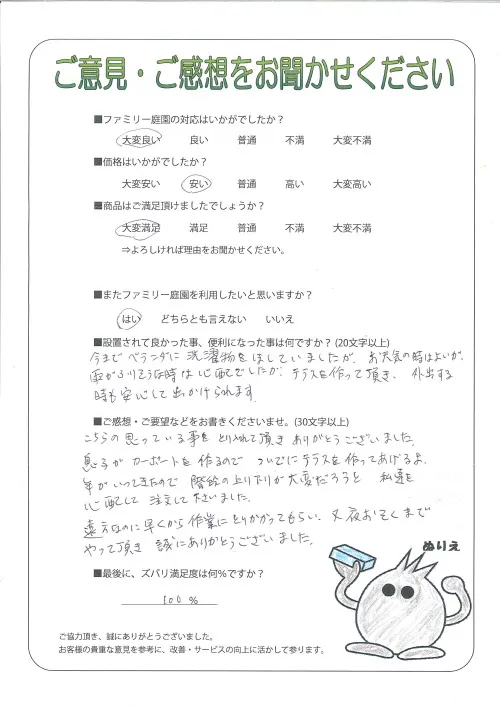 ご意見・ご感想をお聞かせください
■ファミリー庭園の対応はいかがでしたか？
大変良い 良い 普通 不満 大変不満
■価格はいかがでしたか？
大変安い 安い 普通 高い 大変高い
■商品はご満足頂けましたでしょうか？
大変満足 満足 普通 不満 大変不満
⇒よろしければ理由をお聞かせください。
■またファミリー庭園を利用したいと思いますか？
はい どちらとも言えない いいえ
■設置されて良かった事、便利になった事は何ですか？(20文字以上)
今までベランダに洗濯物をほしていましたが、お天気の時はよいが、
雨がふりそうな時は心配でしたが、テラスを作って頂き、外出する
時も安心して出かけられます
■ご感想・ご要望などをお書きくださいませ。(30文字以上)
こちらの思っている事をとり入れて頂きありがとうございました。
息子がカーポートを作るのでついでにテラスを作ってあげるよ、
年がいってきたので階段の上り下りが大変だろうと私達を
心配して注文して下さいました。
遠方なのに早くから作業にとりかかってもらい、又夜おそくまで
やって頂き誠にありがとうございました。
■最後に、ズバリ満足度は何％ですか？
100 %
ぬりえ
ご協力頂き、誠にありがとうございました。
お客様の貴重な意見を参考に、改善・サービスの向上に活かして参ります。